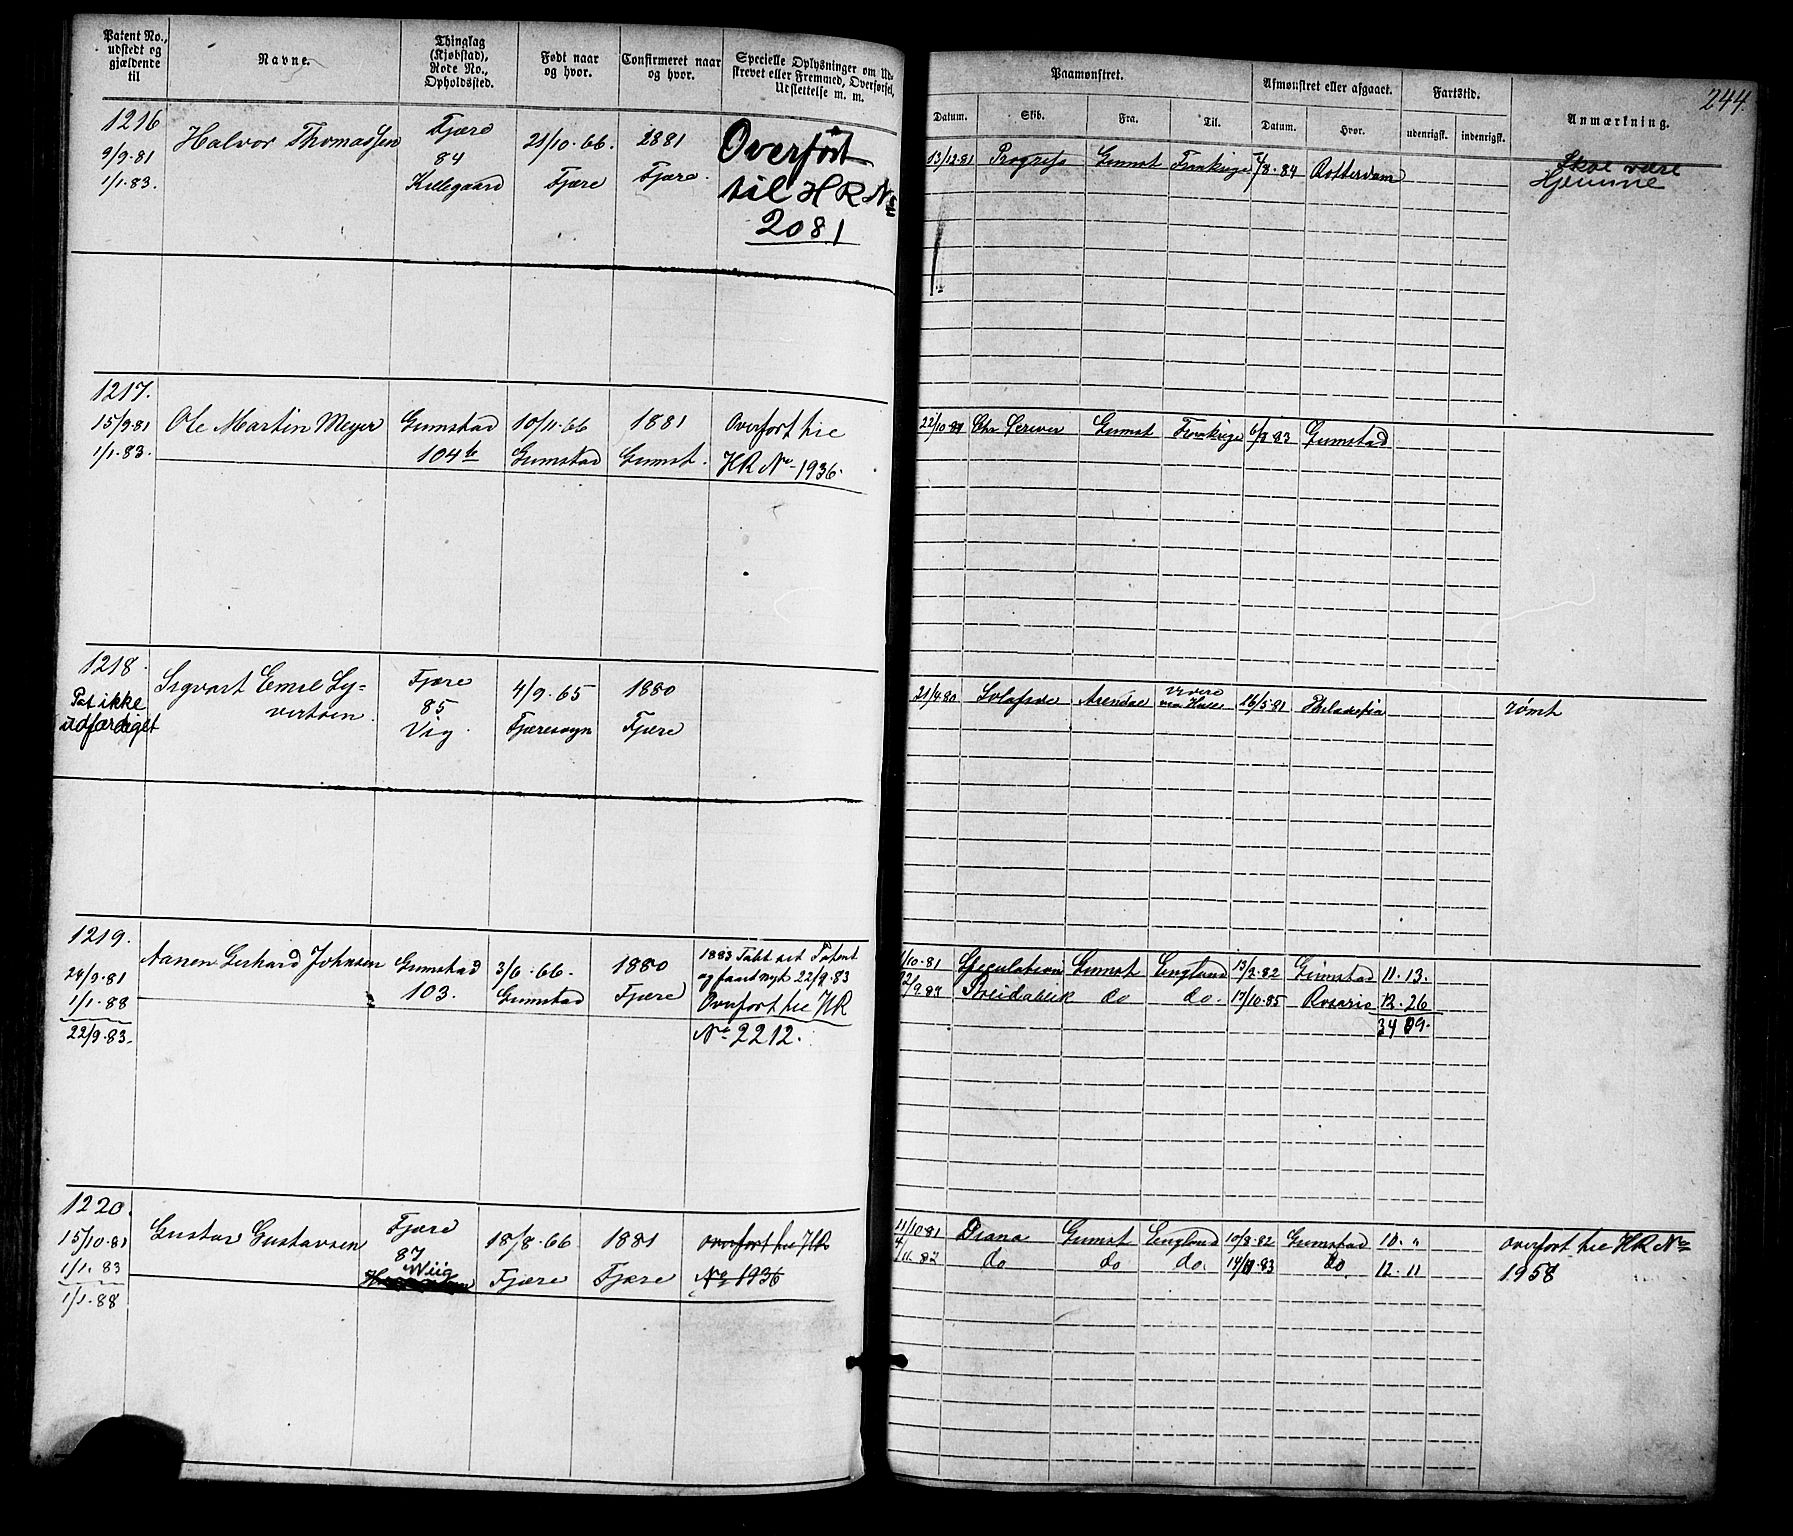 Patent No.,
udstedt og
gjældende
til
Navne.
Thinglag
(Kjøbstad),
Rode No.,
Opholdssted.
Født naar
og hvor.
Confirmeret naar
og hvor.
Specielle Oplysninger om Ud-
skrevet eller Fremmed, Overførsel,
Udslettelse m. m.
Paamønstret.
Datum.
Skib.
Fra.
Til.
Afmønstret eller afgaaet.
Datum.
Hvor.
Fartstid.
udenrigsk.
indenrigsk.
Anmærkning.
244.
1216
9/9.81
1/1.83.
Halvor Thomassen
Fjære
84
Killegaard
21/10.66.
Fjære
1881
Fjære.
Overført
til HR No
2081
13/12 81 Progress Grmst Frankrige 4/8.84 Rotterdam
Skal være
Hjemme
1217.
15/9.81
1/1.83.
Ole Martin Meyer
Grimstad
104b
10/11.66
Grimstad
1881
Grimst.
Overført til
HR No 1936.
22/10.81 Chr Scriver Grimst Frankrige 6/8 83 Grimstad
1218.
Pat ikke
udfærdiget
Sigvart Emil Sy-
vertsen.
Fjære
85
Vig.
4/9.65
Fjæresogn
1880
Fjære
21/4.80 Arendal 16/5.81 Philadelfia
rømt
1219.
24/9.81
1/1.88
22/9.83.
Aanen Gerhard Johnsen
Grimstad
103.
3/6.66.
Grimstad
1880
Fjære
1883 Tabt sit Patent
og faaet nyt 22/9.83
Overført til HR
No 2212.
1/10.81 Speculation Grimst England 13/9.82 Grimstad 11.13.
22/9.83 Breidablik do do. 17/10.85 Rosario 12.26
34 09.
1220.
15/10.81
1/1.83
1/1.88
Gustav Gustavsen
Fjære
87
Wiig
18/8.66
Fjære
1881
Fjære
overført til HR
No 1936
11/10.81 Diana Grimst England 10/8.82 Grimstad 10. "
4/11.82 do do do. do 12.11
overført til HR No
1958